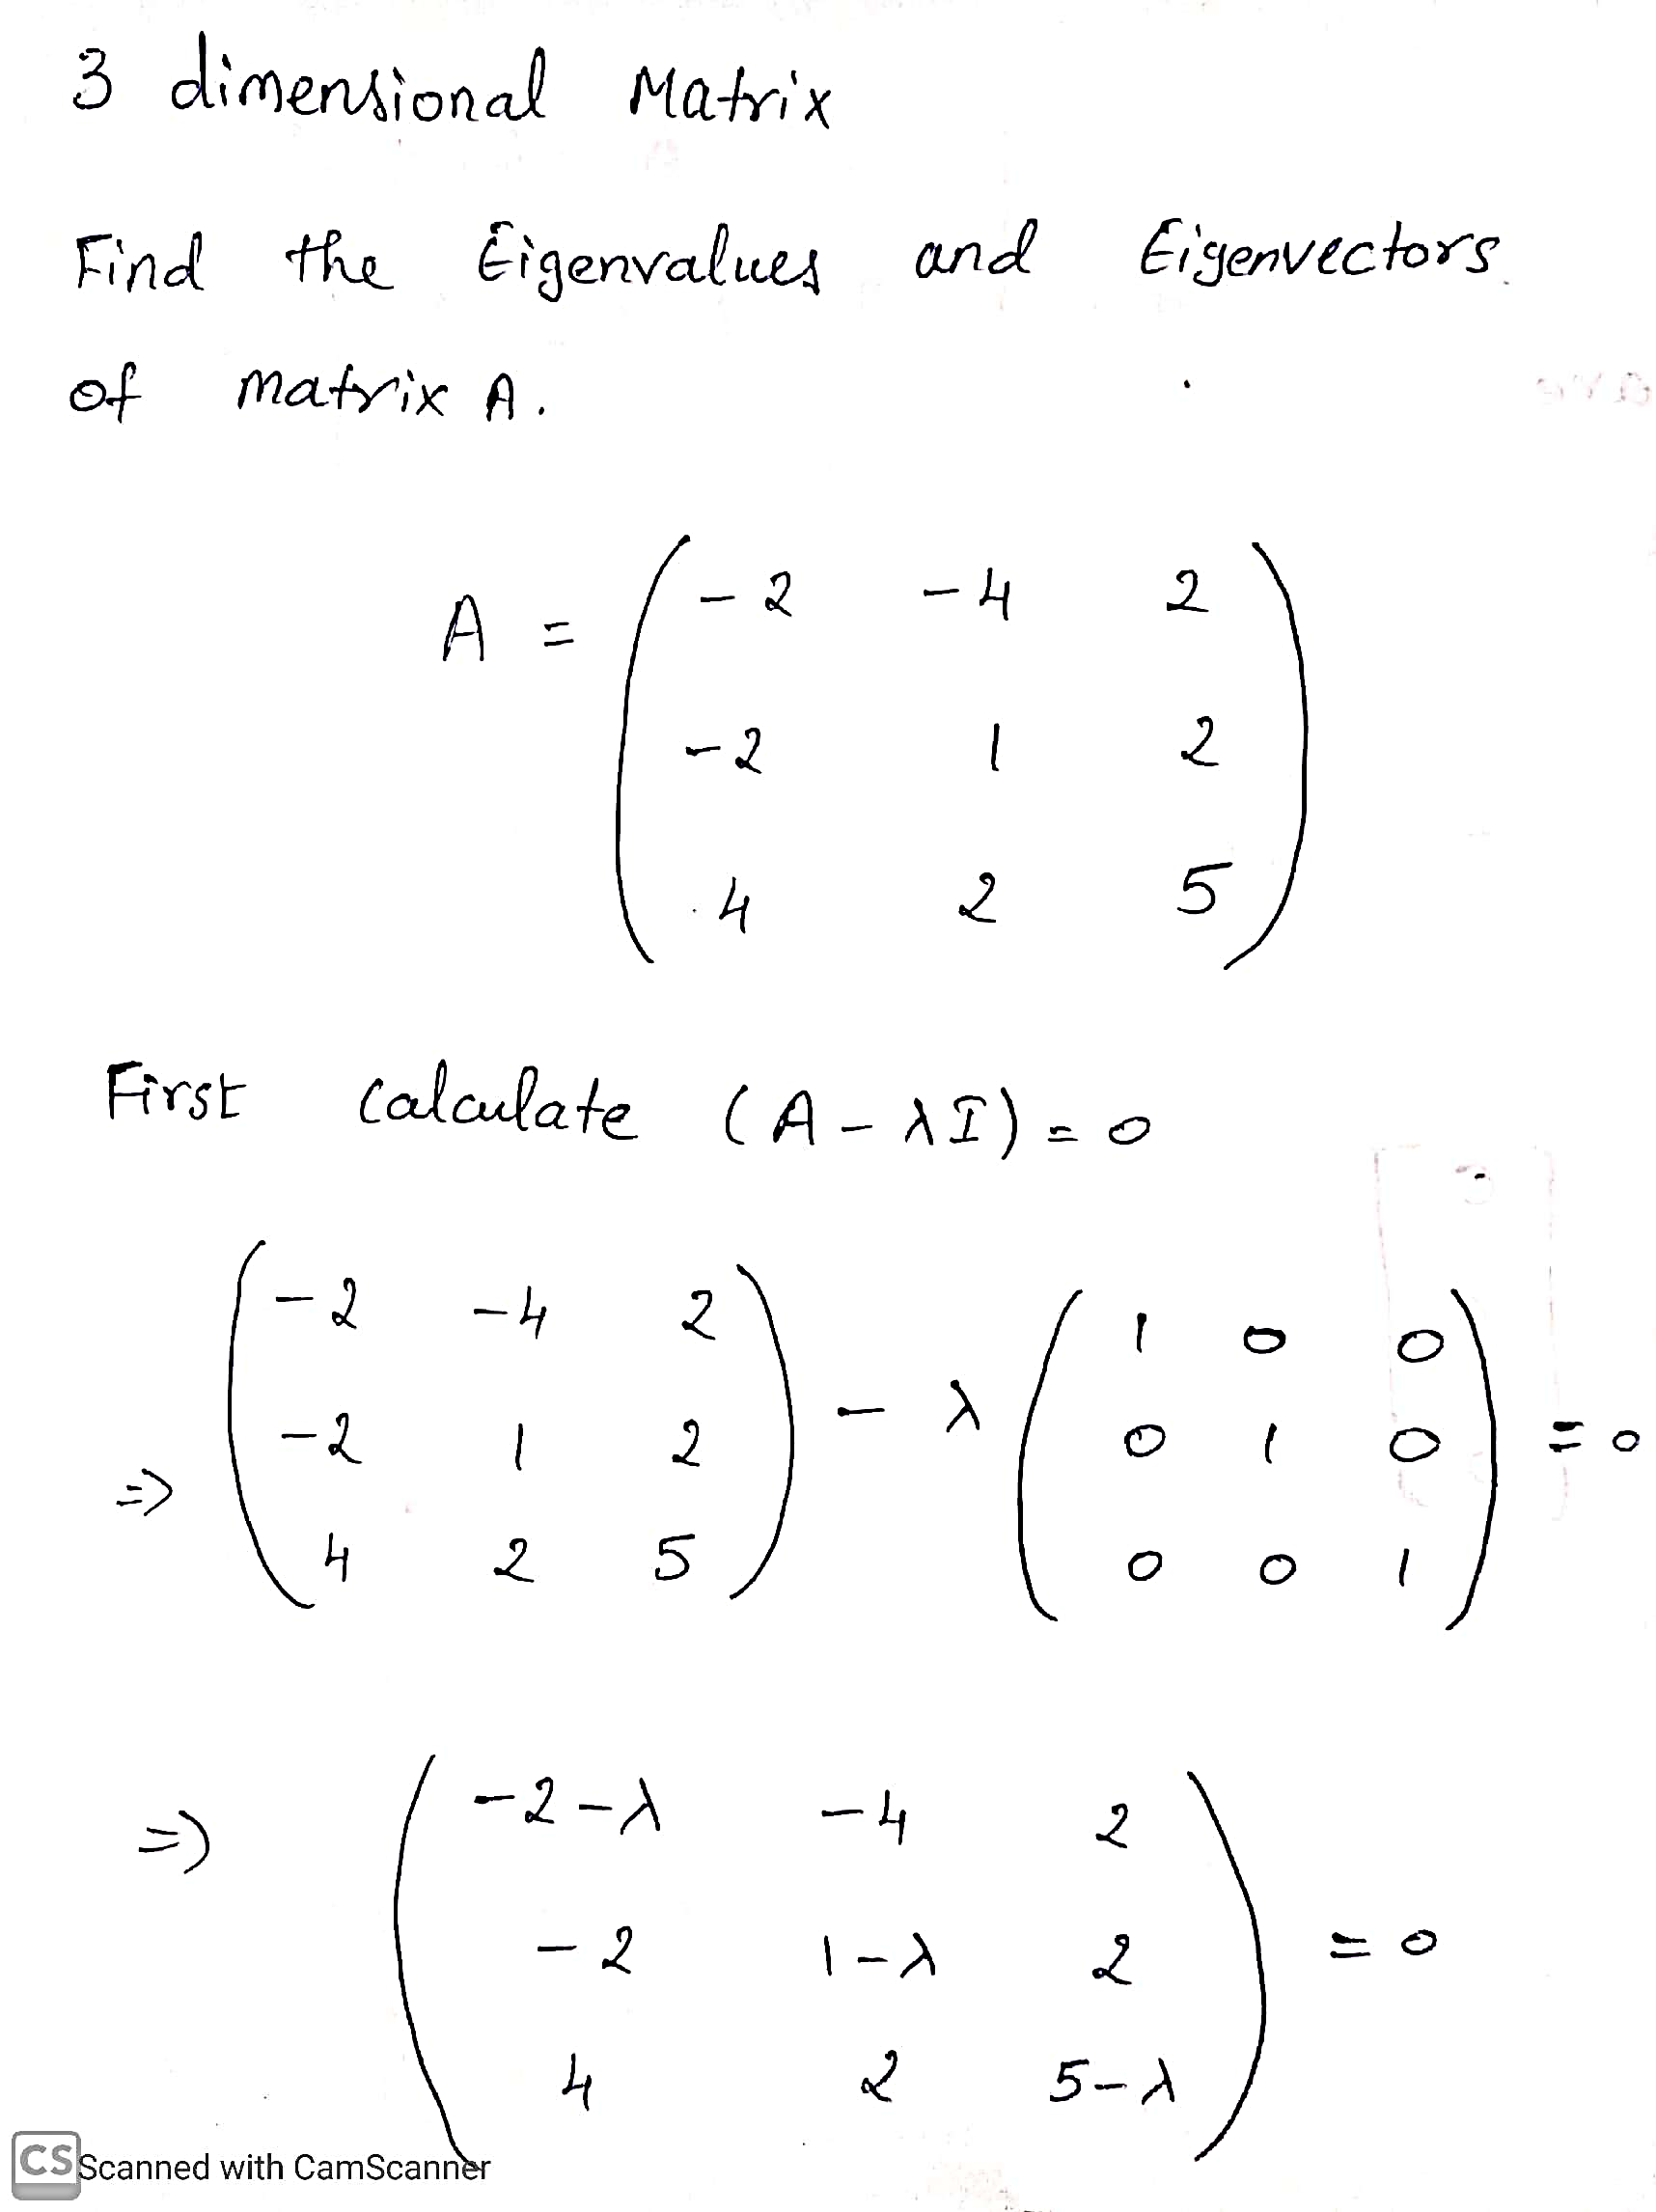 3 dimensional Matrix
Find the Eigenvalues and Eigenvectors
of matrix A.
A = ( -2 -4 2
-2 1 2
4 2 5 )
First calculate (A - λI) = 0
⇒ ( -2 -4 2
-2 1 2
4 2 5 ) - λ ( 1 0 0
0 1 0
0 0 1 ) = 0
⇒ ( -2-λ -4 2
-2 1-λ 2
4 2 5-λ ) = 0
CS Scanned with CamScanner